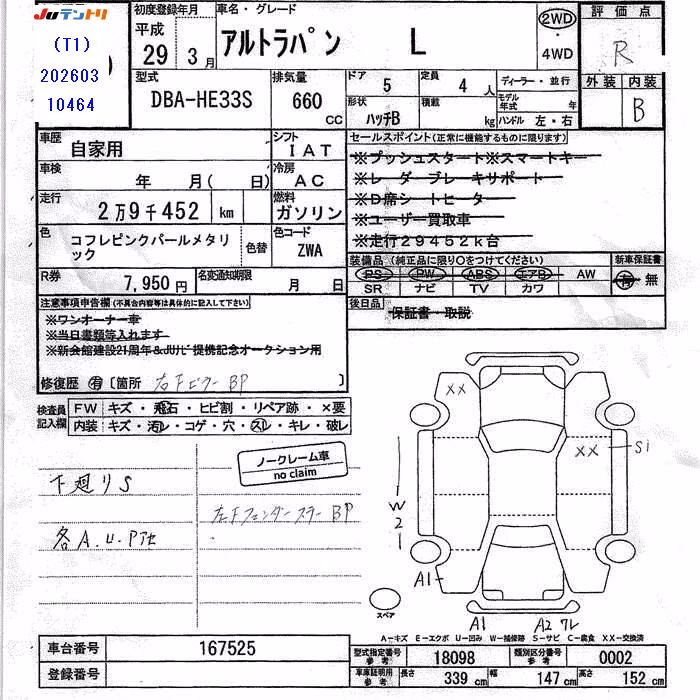 JUテントリ
(T1)
202603
10464
初度登録年月
平成
29年 3月
車名・グレード
アルトラパン L
2WD
・
4WD
評価点
R
外装 内装
B
型式
DBA-HE33S
排気量
660
CC
ドア
5
定員
4 人
形状
ハッチB
積載
kg
ディーラー・並行
モデル年式 年
ハンドル 左・右
車歴
自家用
シフト
IAT
車検
年 月( 日)
冷房
AC
走行
2万9千452 km
燃料
ガソリン
色
コフレピンクパールメタリック
色替
色コード
ZWA
R券
7,950円
名変通知期限
月 日
セールスポイント(正常に機能するものに限ります)
※プッシュスタート※スマートキー
※レーダーブレーキサポート
※D席シートヒーター
※ユーザー買取車
※走行29452k台
装備品(純正品に限り○をつけてください)
PS PW ABS エアB AW
SR ナビ TV カワ
新車保証書
有・無
後日品
保証書・取説
注意事項申告欄(不具合内容等は具体的に記入して下さい)
※ワンオーナー車
※当日書類等入れます
※新会館建設21周年&JUナビ提携記念オークション用
修復歴 有 〔箇所 右下ピラーBP 〕
検査員記入欄
FW キズ・飛石・ヒビ割・リペア跡・×要
内装 キズ・汚レ・コゲ・穴・スレ・キレ・破レ
ノークレーム車
no claim
下廻りS
各A.U.P他
BP
XX
XX
S1
W2
A1
A1
A2
スペア
A―キズ E―エクボ U―凹み W―補修跡 S―サビ C―腐食 XX―交換済
車台番号
167525
登録番号
型式指定番号
参考
18098
類別区分番号
参考
0002
車庫証明用
参考
長さ 339 cm
幅 147 cm
高さ 152 cm